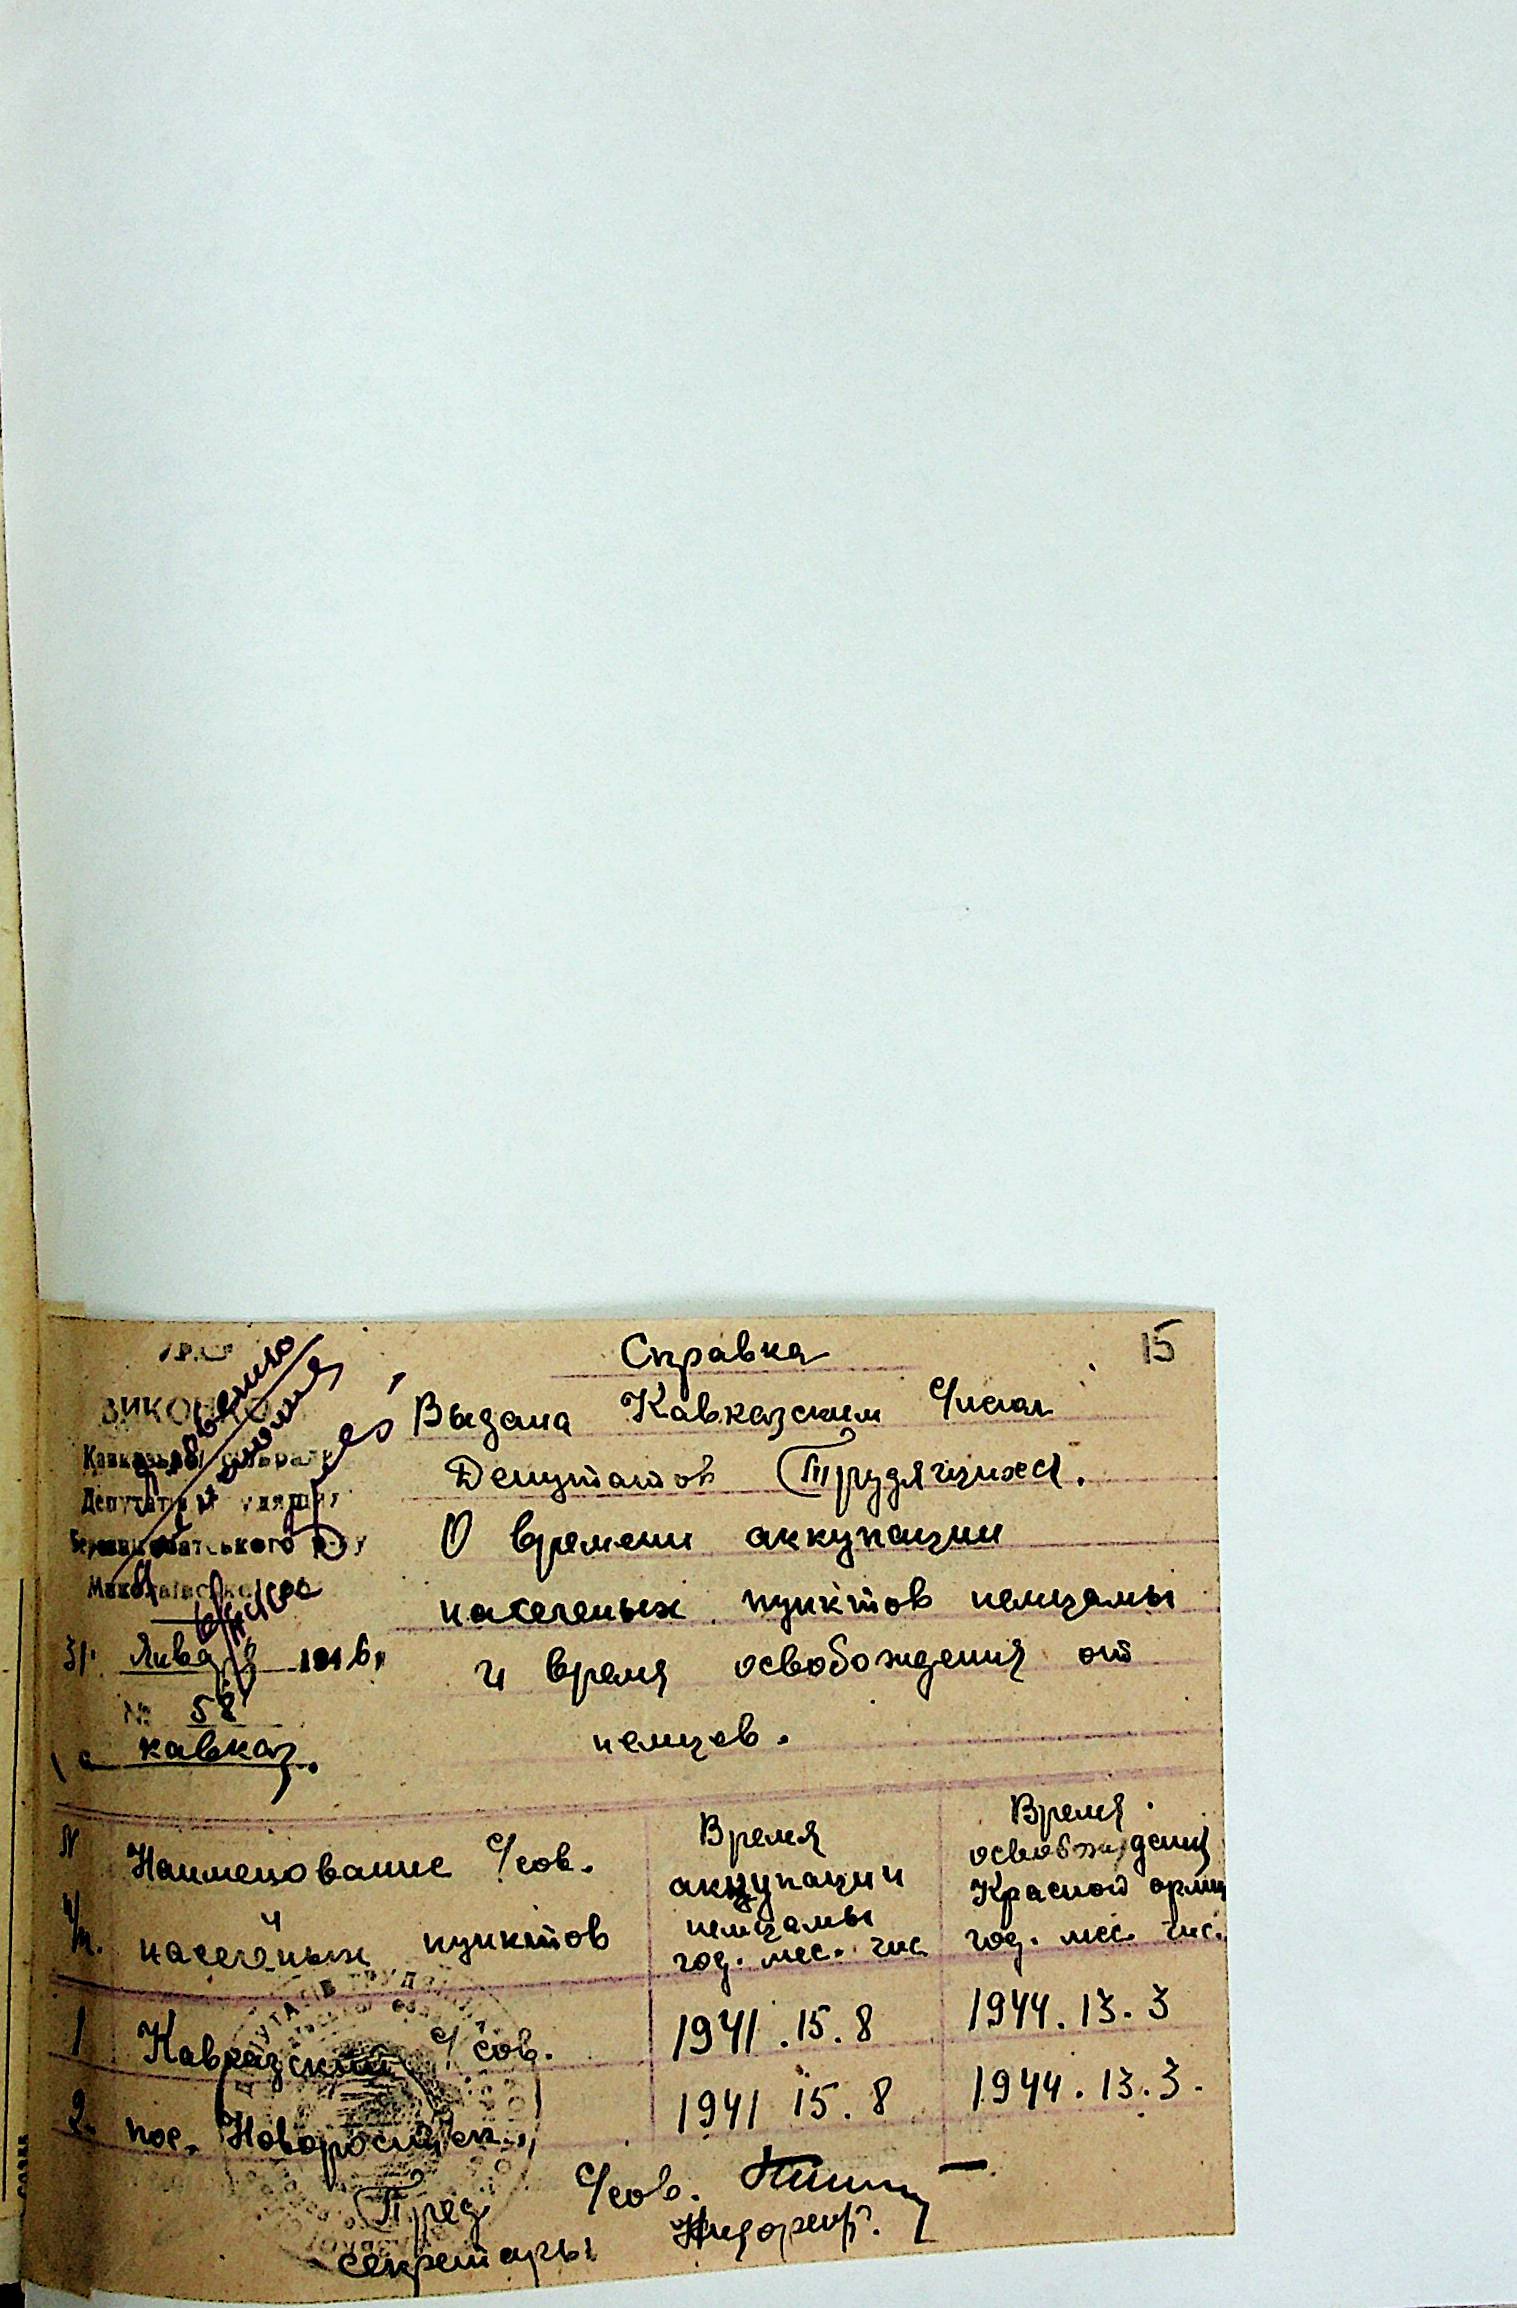 Справка
15
Выдана Кавказским С/исполк
Депутатов Трудящихся.
О времени аккупации
населеных пунктов немцамы
и время освобождения от
немцев.
УРСР
ВИКОНКОМ
Кавказької сільради
Депутатів Трудящих
Березнегуватського р-ну
Миколаївської
31. Января 1946.
№ 58
с кавказ.
N п/п. Наименование С/сов. и населеных пунктов
Время аккупации немцамы год. мес. чис
Время освобождения Красной арми год. мес. чис.
1 Кавказский С/сов. 1941.15.8 1944.13.3
2. пос. Новоросийск., 1941 15.8 1944.13.3.
Пред С/сов.
секретарь